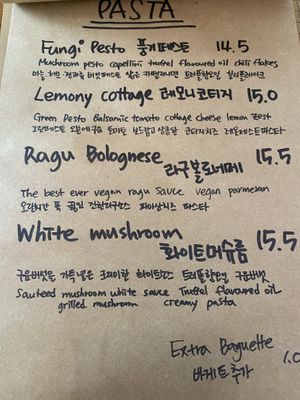 PASTA
Fungi Pesto 풍기페스토 14.5
Mushroom pesto capellini truffel flavoured oil chili flakes
Lemony cottage 레모니코티지 15.0
Green Pesto Balsamic tomato cottage cheese lemon zest
Ragu Bolognese 라구볼로네제 15.5
The best ever vegan ragu sauce vegan parmesan
White mushroom
화이트머슈룸 15.5
구운버섯을 가득넣은 크리미한 화이트소스 트러플향오일 구운버섯
Sauteed mushroom white sauce Truffel flavoured oil
grilled mushroom creamy pasta
Extra Baguette
바게트추가 1.0